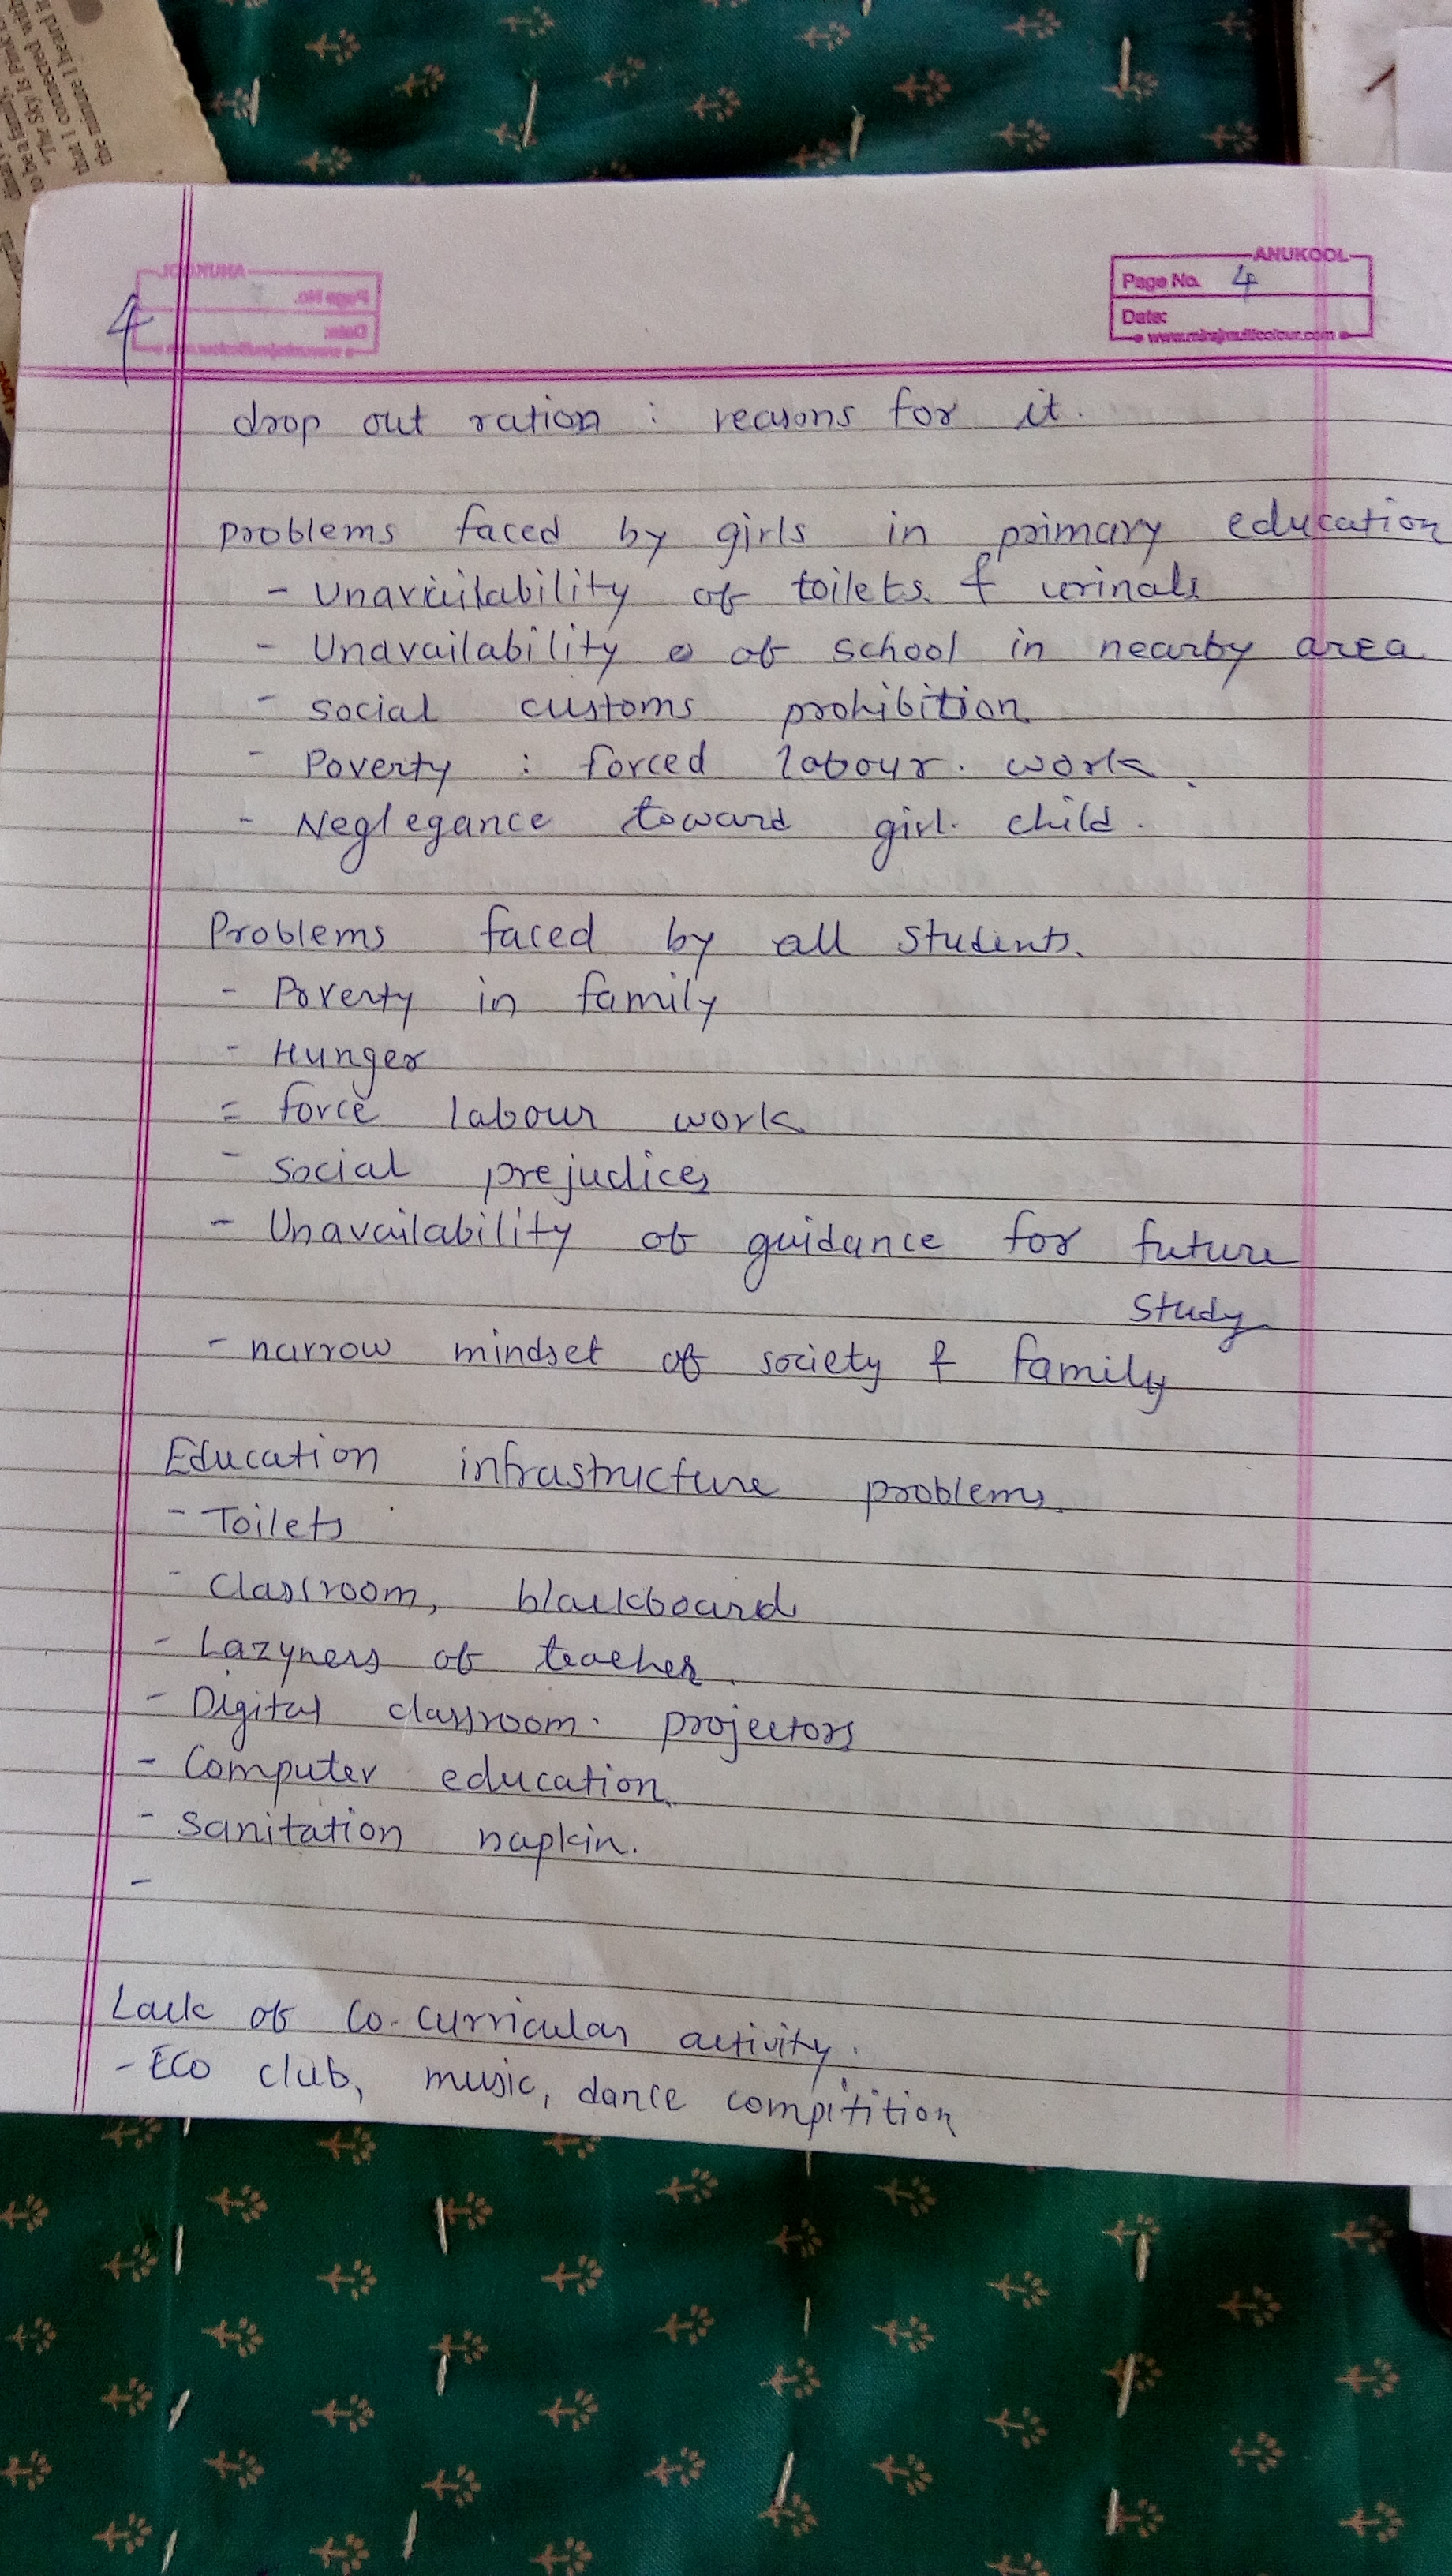 the minute I heard it
that I connected with
"The Sky Is Pink
to be a family,
ANUKOOL
Page No. 4
Date:
www.mirajmulticolour.com
4
drop out ration : reasons for it.
problems faced by girls in primary education
- Unavailability of toilets & urinals
- Unavailability of school in nearby area
- social customs prohibition
- Poverty : forced labour. work.
- Neglegance toward girl. child.
Problems faced by all students.
- Poverty in family
- Hunger
= force labour work
- social prejudices
- Unavailability of guidance for future
study
- narrow mindset of society & family
Education infrastructure problems.
- Toilets
- classroom, blackboard
- Lazyness of teacher.
- Digital classroom. projectors
- Computer education.
- Sanitation napkin.
-
Lack of Co-curricular activity.
- Eco club, music, dance compitition